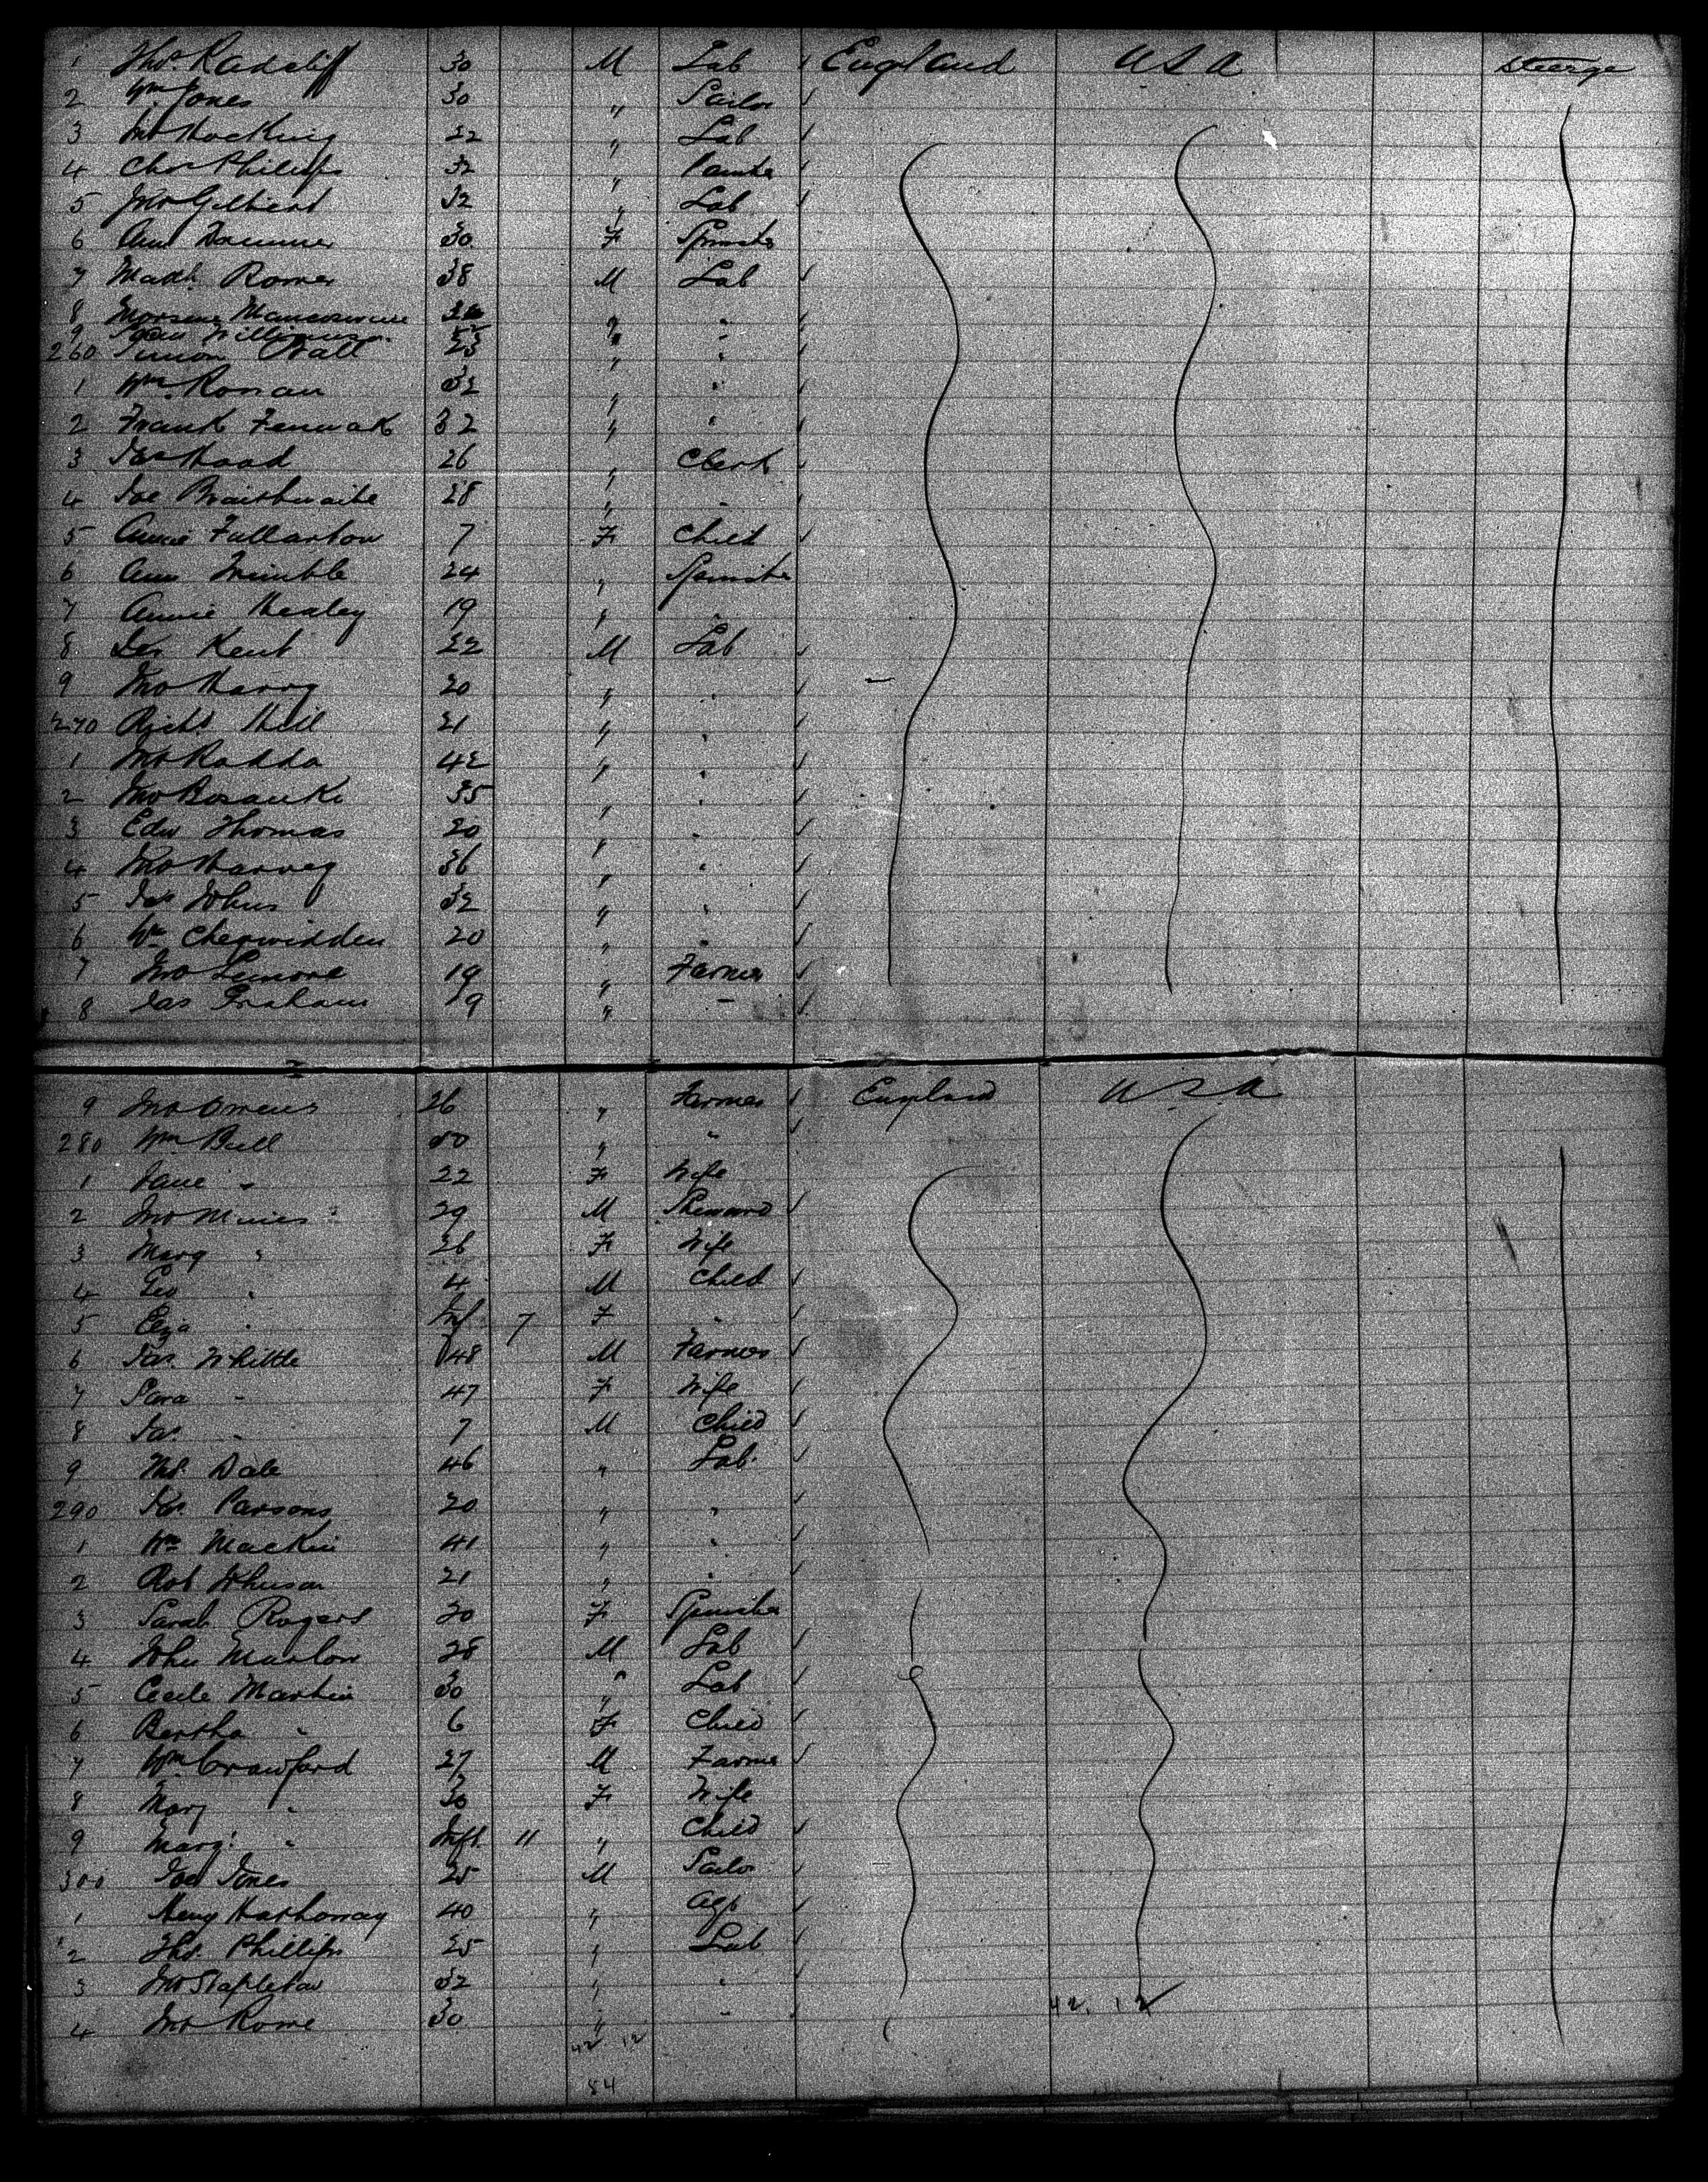 1 Thos. Radcliff 30 M Lab England USA Steerge
2 Wm. Jones 30 " Sailor
3 Jno Hocking 22 " Lab
4 Chas Philips 32 "
5 Jno Gilbert 32 " Lab
6 Ann 30 F Spinster
7 Madh. Romer 38 M Lab
8 " "
9 " "
260 Simon Wall 23 " "
1 Wm. Ronan 32 " "
2 Frank Fenwak 32 " "
3 Jas Hoad 26 " Clerk
4 Joe Braithwaite 28 " "
5 Annie Fullarton 7 F Child
6 Ann Trimble 24 " Spinster
7 Annie Healey 19 " "
8 Kent 22 M Lab
9 Jno Harry 20 " "
270 Richd. Hill 21 " "
1 Jno Radda 42 " "
2 Jno Bosanke 35 " "
3 Edw Thomas 20 " "
4 Jno Harvey 36 " "
5 Jas Johns 32 " "
6 Wm Chegwidden 20 " "
7 Jno 19 " Farmer
8 Jas Graham 19 " "
9 Jno Owens 26 " Farmer England U.S.A
280 Wm Bell 50 " "
1 Jane " 22 F Wife
2 Jno 29 M
3 Mary " 26 F Wife
4 Geo " 4 M Child
5 Eliza " Inf 7 F "
6 Jas. Whittle 48 M Farmer
7 Sara " 47 F Wife
8 Jas. " 7 M Child
9 Dale 46 " Lab.
290 Parsons 20 " "
1 Wm Mackin 41 " "
2 Rob Johnson 21 " "
3 Sarah Rogers 20 F Spinster
4 John Marlow 28 M Lab
5 Cecile Martin 30 " Lab
6 Bertha " 6 F Child
7 Wm. Crawford 27 M Farmer
8 Mary " 30 F Wife
9 Margt. " Inft. 11 " Child
300 Jones 25 M Sailor
1 Henry Hathoway 40 " Agt
2 Thos. Phillips 25 " Lab
3 Jno Stapleton 32 " "
4 Jno Rowe 30 " "
42. 12
42 12
54